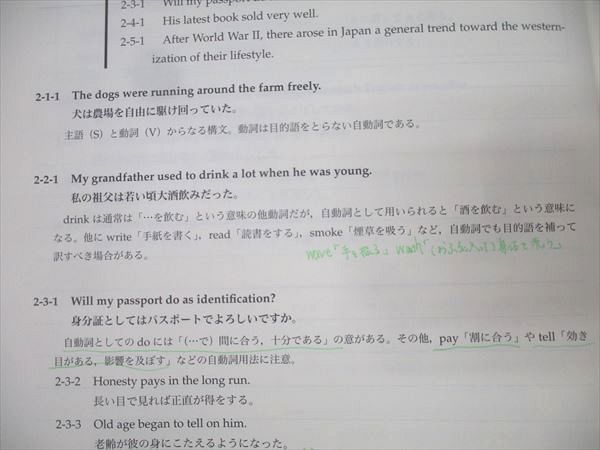 2-3-1 Will my passport do
2-4-1 His latest book sold very well.
2-5-1 After World War II, there arose in Japan a general trend toward the western-
ization of their lifestyle.
2-1-1 The dogs were running around the farm freely.
犬は農場を自由に駆け回っていた。
主語（S）と動詞（V）からなる構文。動詞は目的語をとらない自動詞である。
2-2-1 My grandfather used to drink a lot when he was young.
私の祖父は若い頃大酒飲みだった。
drink は通常は「…を飲む」という意味の他動詞だが，自動詞として用いられると「酒を飲む」という意味に
なる。他に write「手紙を書く」，read「読書をする」，smoke「煙草を吸う」など，自動詞でも目的語を補って
訳すべき場合がある。
wave「手を振る」 wash「
2-3-1 Will my passport do as identification?
身分証としてはパスポートでよろしいですか。
自動詞としての do には「(…で) 間に合う，十分である」の意がある。その他，pay「割に合う」や tell「効き
目がある，影響を及ぼす」などの自動詞用法に注意。
2-3-2 Honesty pays in the long run.
長い目で見れば正直が得をする。
2-3-3 Old age began to tell on him.
老齢が彼の身にこたえるようになった。